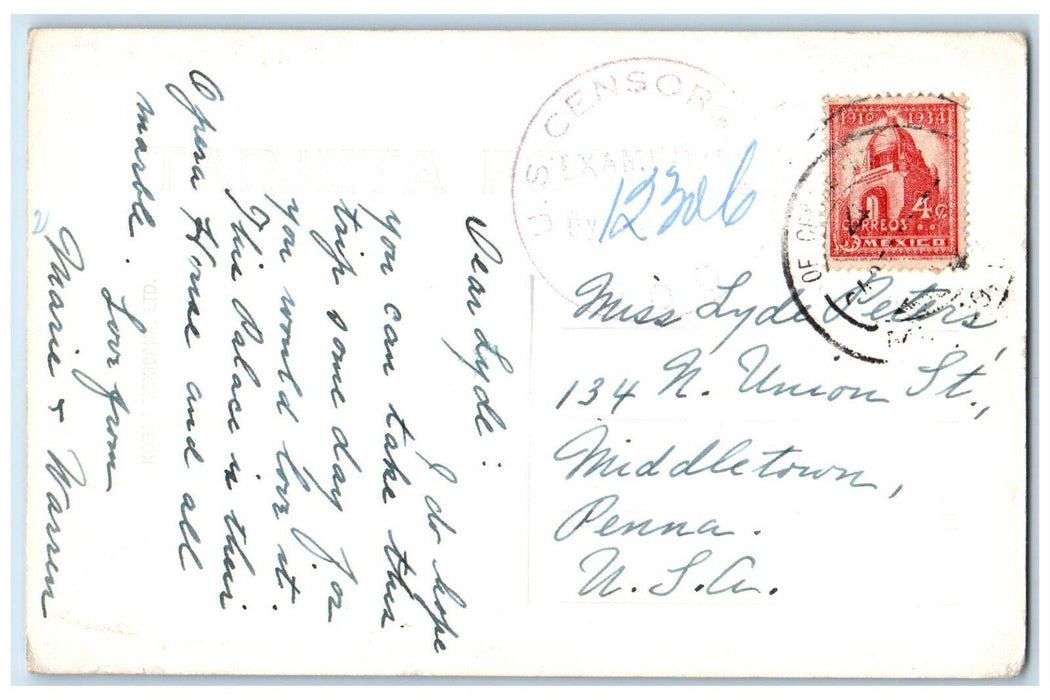 Dear Lyde:
I do hope
you can take this
trip some day for
you would love it.
This Palace is their
Opera House and all
marble.
Love from
Marie & Warren
TARJETA
KODAK MEXICANA, LTD.
U.S. CENSOR
EXAM
By
12326
1910 1934
4¢
CORREOS
MEXICO
OF
Miss Lyde Peters
134 N. Union St.,
Middletown,
Penna.
U.S.A.